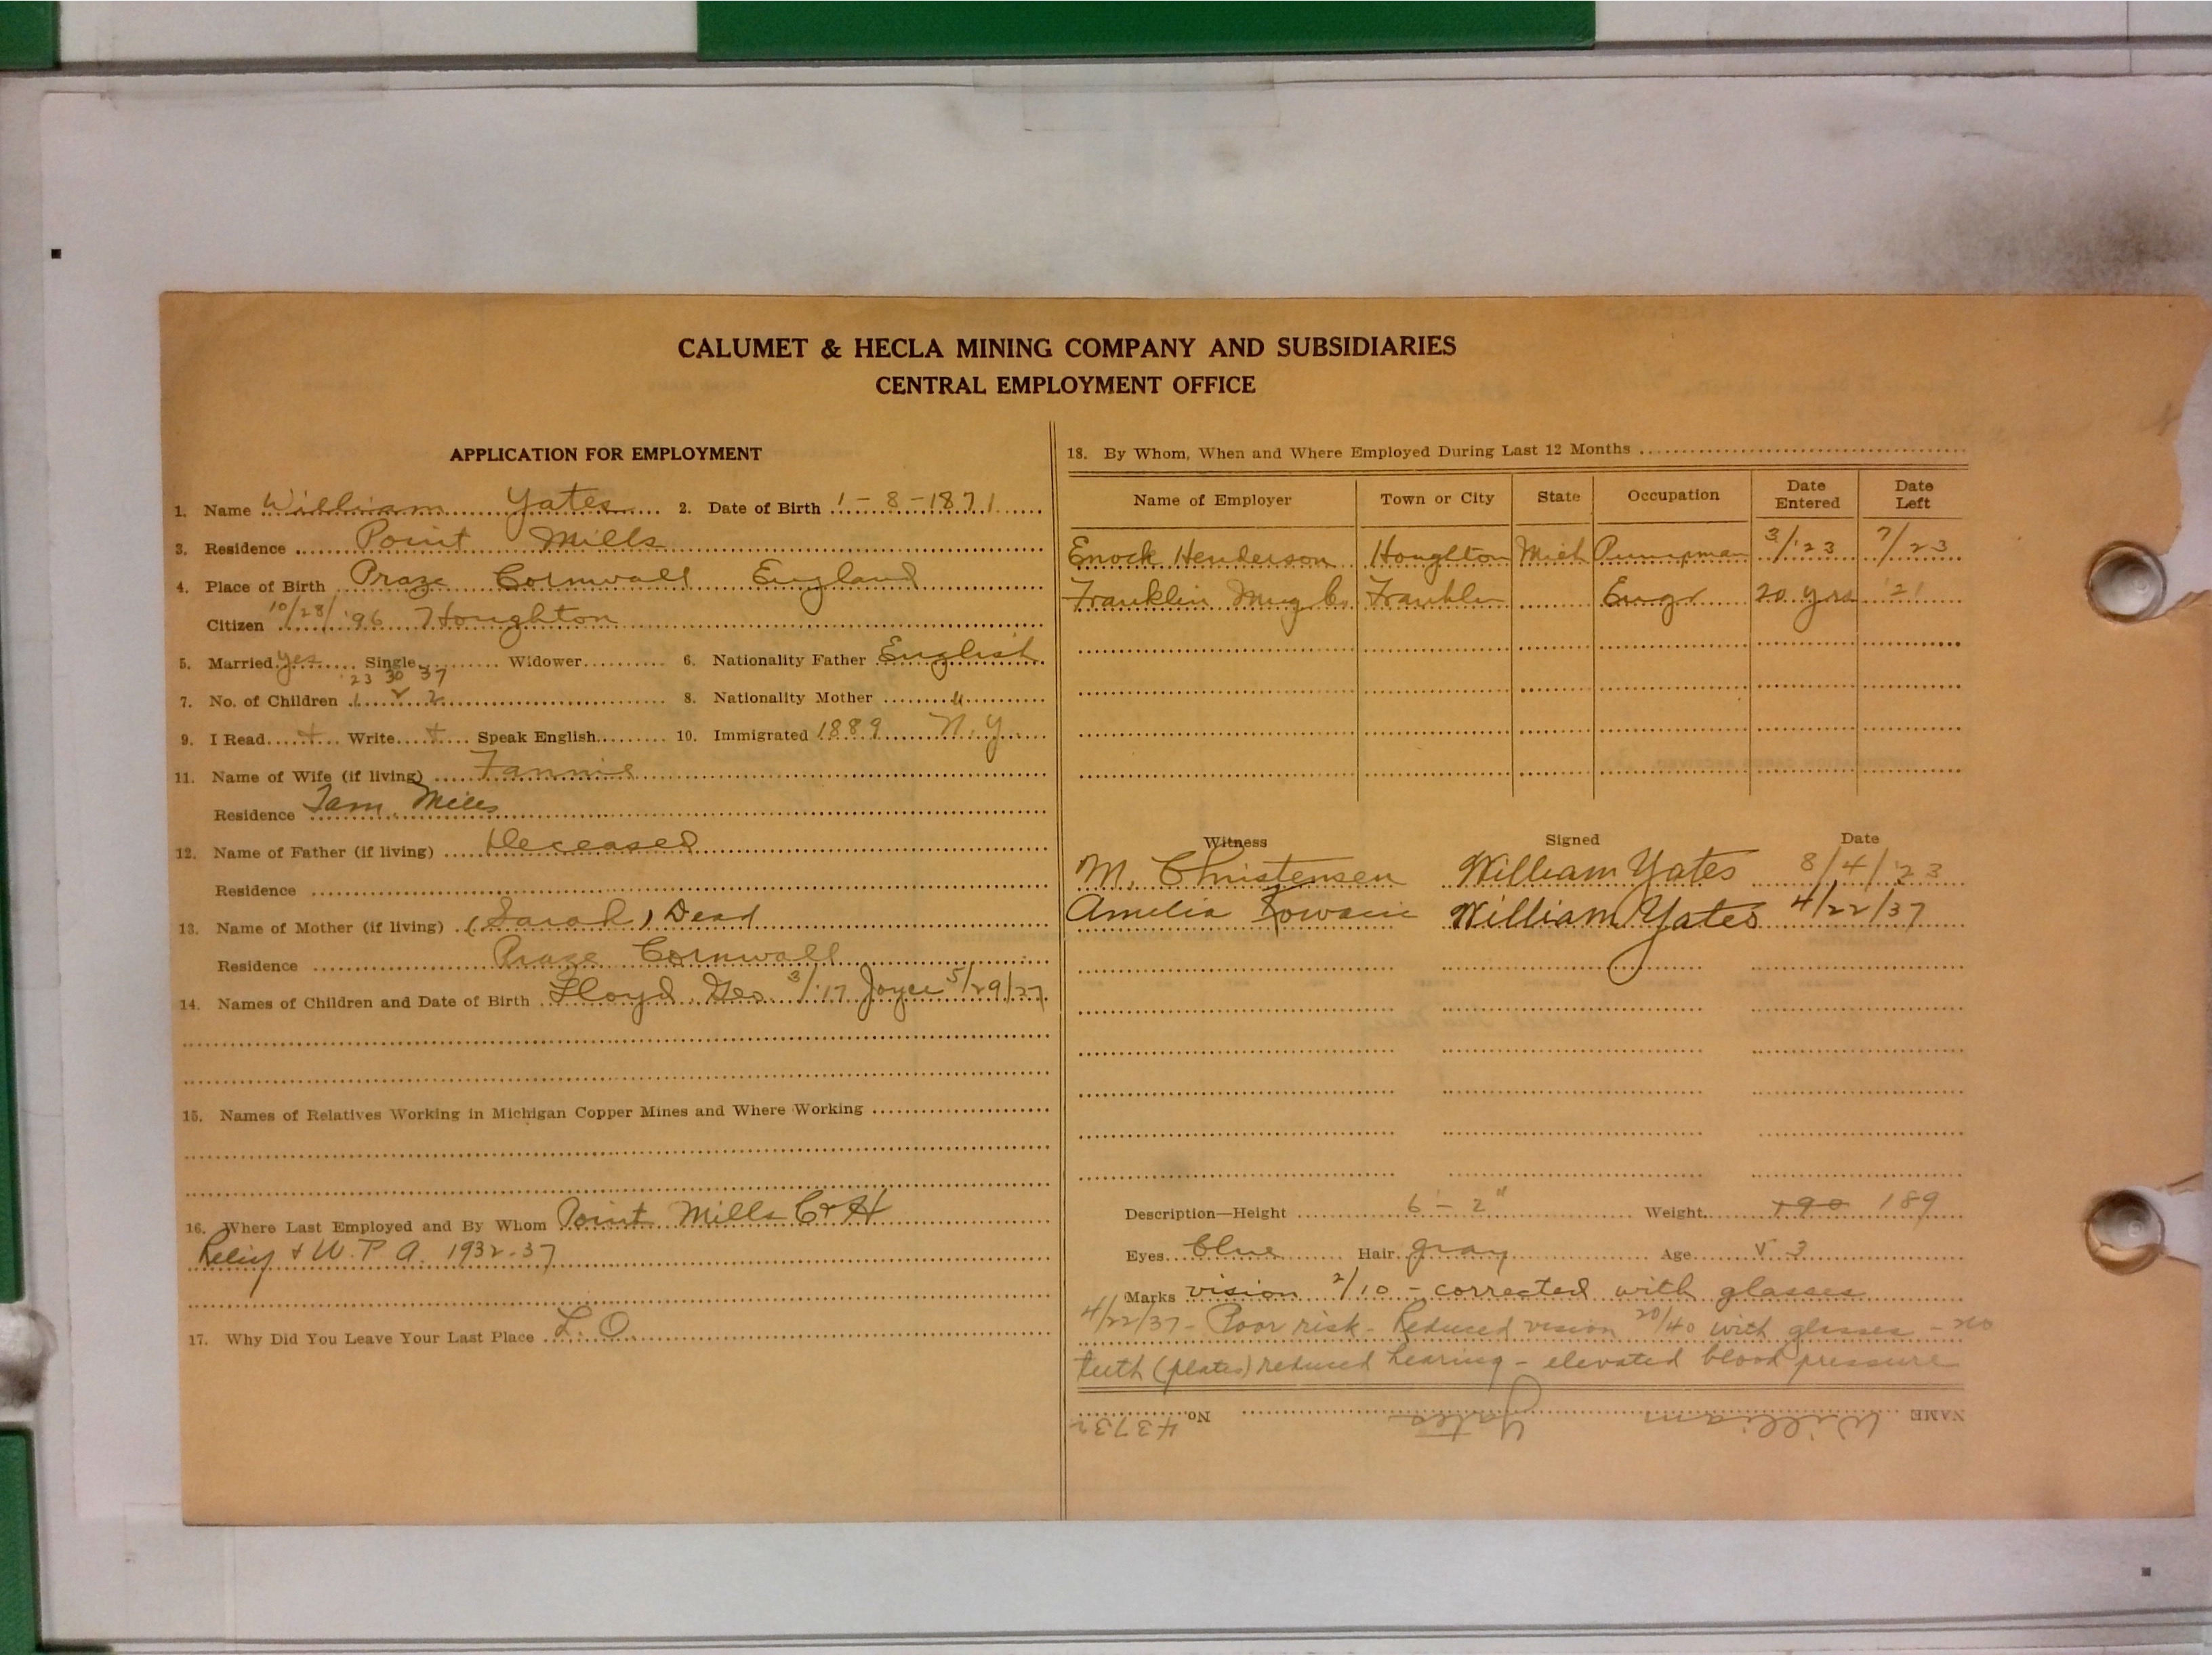 CALUMET & HECLA MINING COMPANY AND SUBSIDIARIES
CENTRAL EMPLOYMENT OFFICE
APPLICATION FOR EMPLOYMENT
1. Name William Yates 2. Date of Birth 1-8-1871
3. Residence Point Mills
4. Place of Birth Praze Cornwall England
Citizen 10/28/'96 Houghton
5. Married yes Single Widower 6. Nationality Father English
'23 30 37
7. No. of Children 1 2 2 8. Nationality Mother "
9. I Read + Write + Speak English 10. Immigrated 1889 N.Y.
11. Name of Wife (if living) Fannie
Residence Tam. Mills
12. Name of Father (if living) Deceased
Residence
13. Name of Mother (if living) (Sarah) Dead
Residence Praze Cornwall
14. Names of Children and Date of Birth Lloyd Geo 3/'17 Joyce 5/29/27
15. Names of Relatives Working in Michigan Copper Mines and Where Working
16. Where Last Employed and By Whom Point Mills C & H
Relief & W.P.A. 1932-37
17. Why Did You Leave Your Last Place L.O.
18. By Whom, When and Where Employed During Last 12 Months
Name of Employer Town or City State Occupation Date Entered Date Left
Enock Henderson Houghton Mich Pumpman 3/'23 7/23
Franklin Mng Co Franklin Engr 20 yrs '21
Witness Signed Date
M. Christensen William Yates 8/4/'23
Amelia William Yates 4/22/37
Description—Height 6-2" Weight 190 189
Eyes blue Hair gray Age 53
Marks vision 2/10 - corrected with glasses
4/22/37 - Poor risk - Reduced vision 20/40 with glasses - no
teeth (plates) reduced hearing - elevated blood pressure
NAME William Yates No. 43732